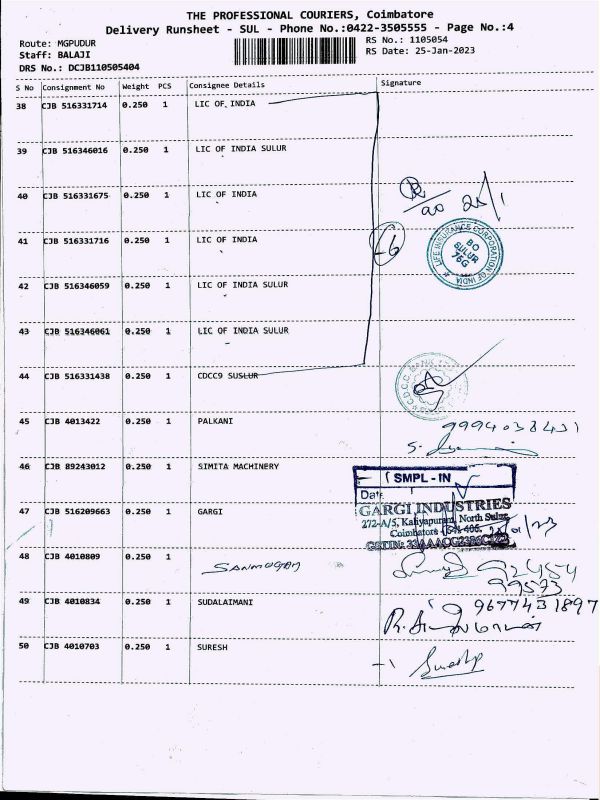 THE PROFESSIONAL COURIERS, Coimbatore
Delivery Runsheet - SUL - Phone No.:0422-3505555 - Page No.:4
Route: MGPUDUR
RS No.: 1105054
Staff: BALAJI
RS Date: 25-Jan-2023
DRS No.: DCJB110505404
S No Consignment No Weight PCS Consignee Details Signature
38 CJB 516331714 0.250 1 LIC OF INDIA
39 CJB 516346016 0.250 1 LIC OF INDIA SULUR
40 CJB 516331675 0.250 1 LIC OF INDIA
41 CJB 516331716 0.250 1 LIC OF INDIA
LIFE INSURANCE CORPORATION OF INDIA
BO
SULUR
76G
42 CJB 516346059 0.250 1 LIC OF INDIA SULUR
43 CJB 516346061 0.250 1 LIC OF INDIA SULUR
44 CJB 516331438 0.250 1 CDCC9 SUSLUR
45 CJB 4013422 0.250 1 PALKANI
46 CJB 89243012 0.250 1 SIMITA MACHINERY
SMPL - IN
Date
47 CJB 516209663 0.250 1 GARGI
GARGI INDUSTRIES
272-A/5, Kaliyapuram, North Sulur,
Coimbatore
48 CJB 4010809 0.250 1 SANMUGAM
49 CJB 4010834 0.250 1 SUDALAIMANI
9677431897
50 CJB 4010703 0.250 1 SURESH